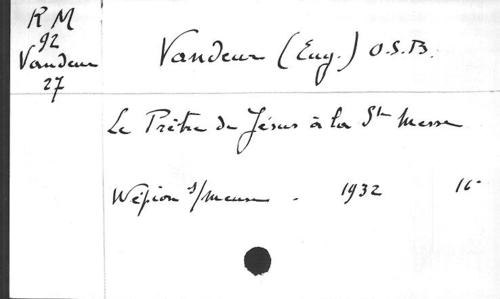 R M
92
Vandeur
27
Vandeur (Eug.) O.S.B.
Le Prêtre de Jésus à la Ste Messe
Wépion s/meuse . 1932 16°